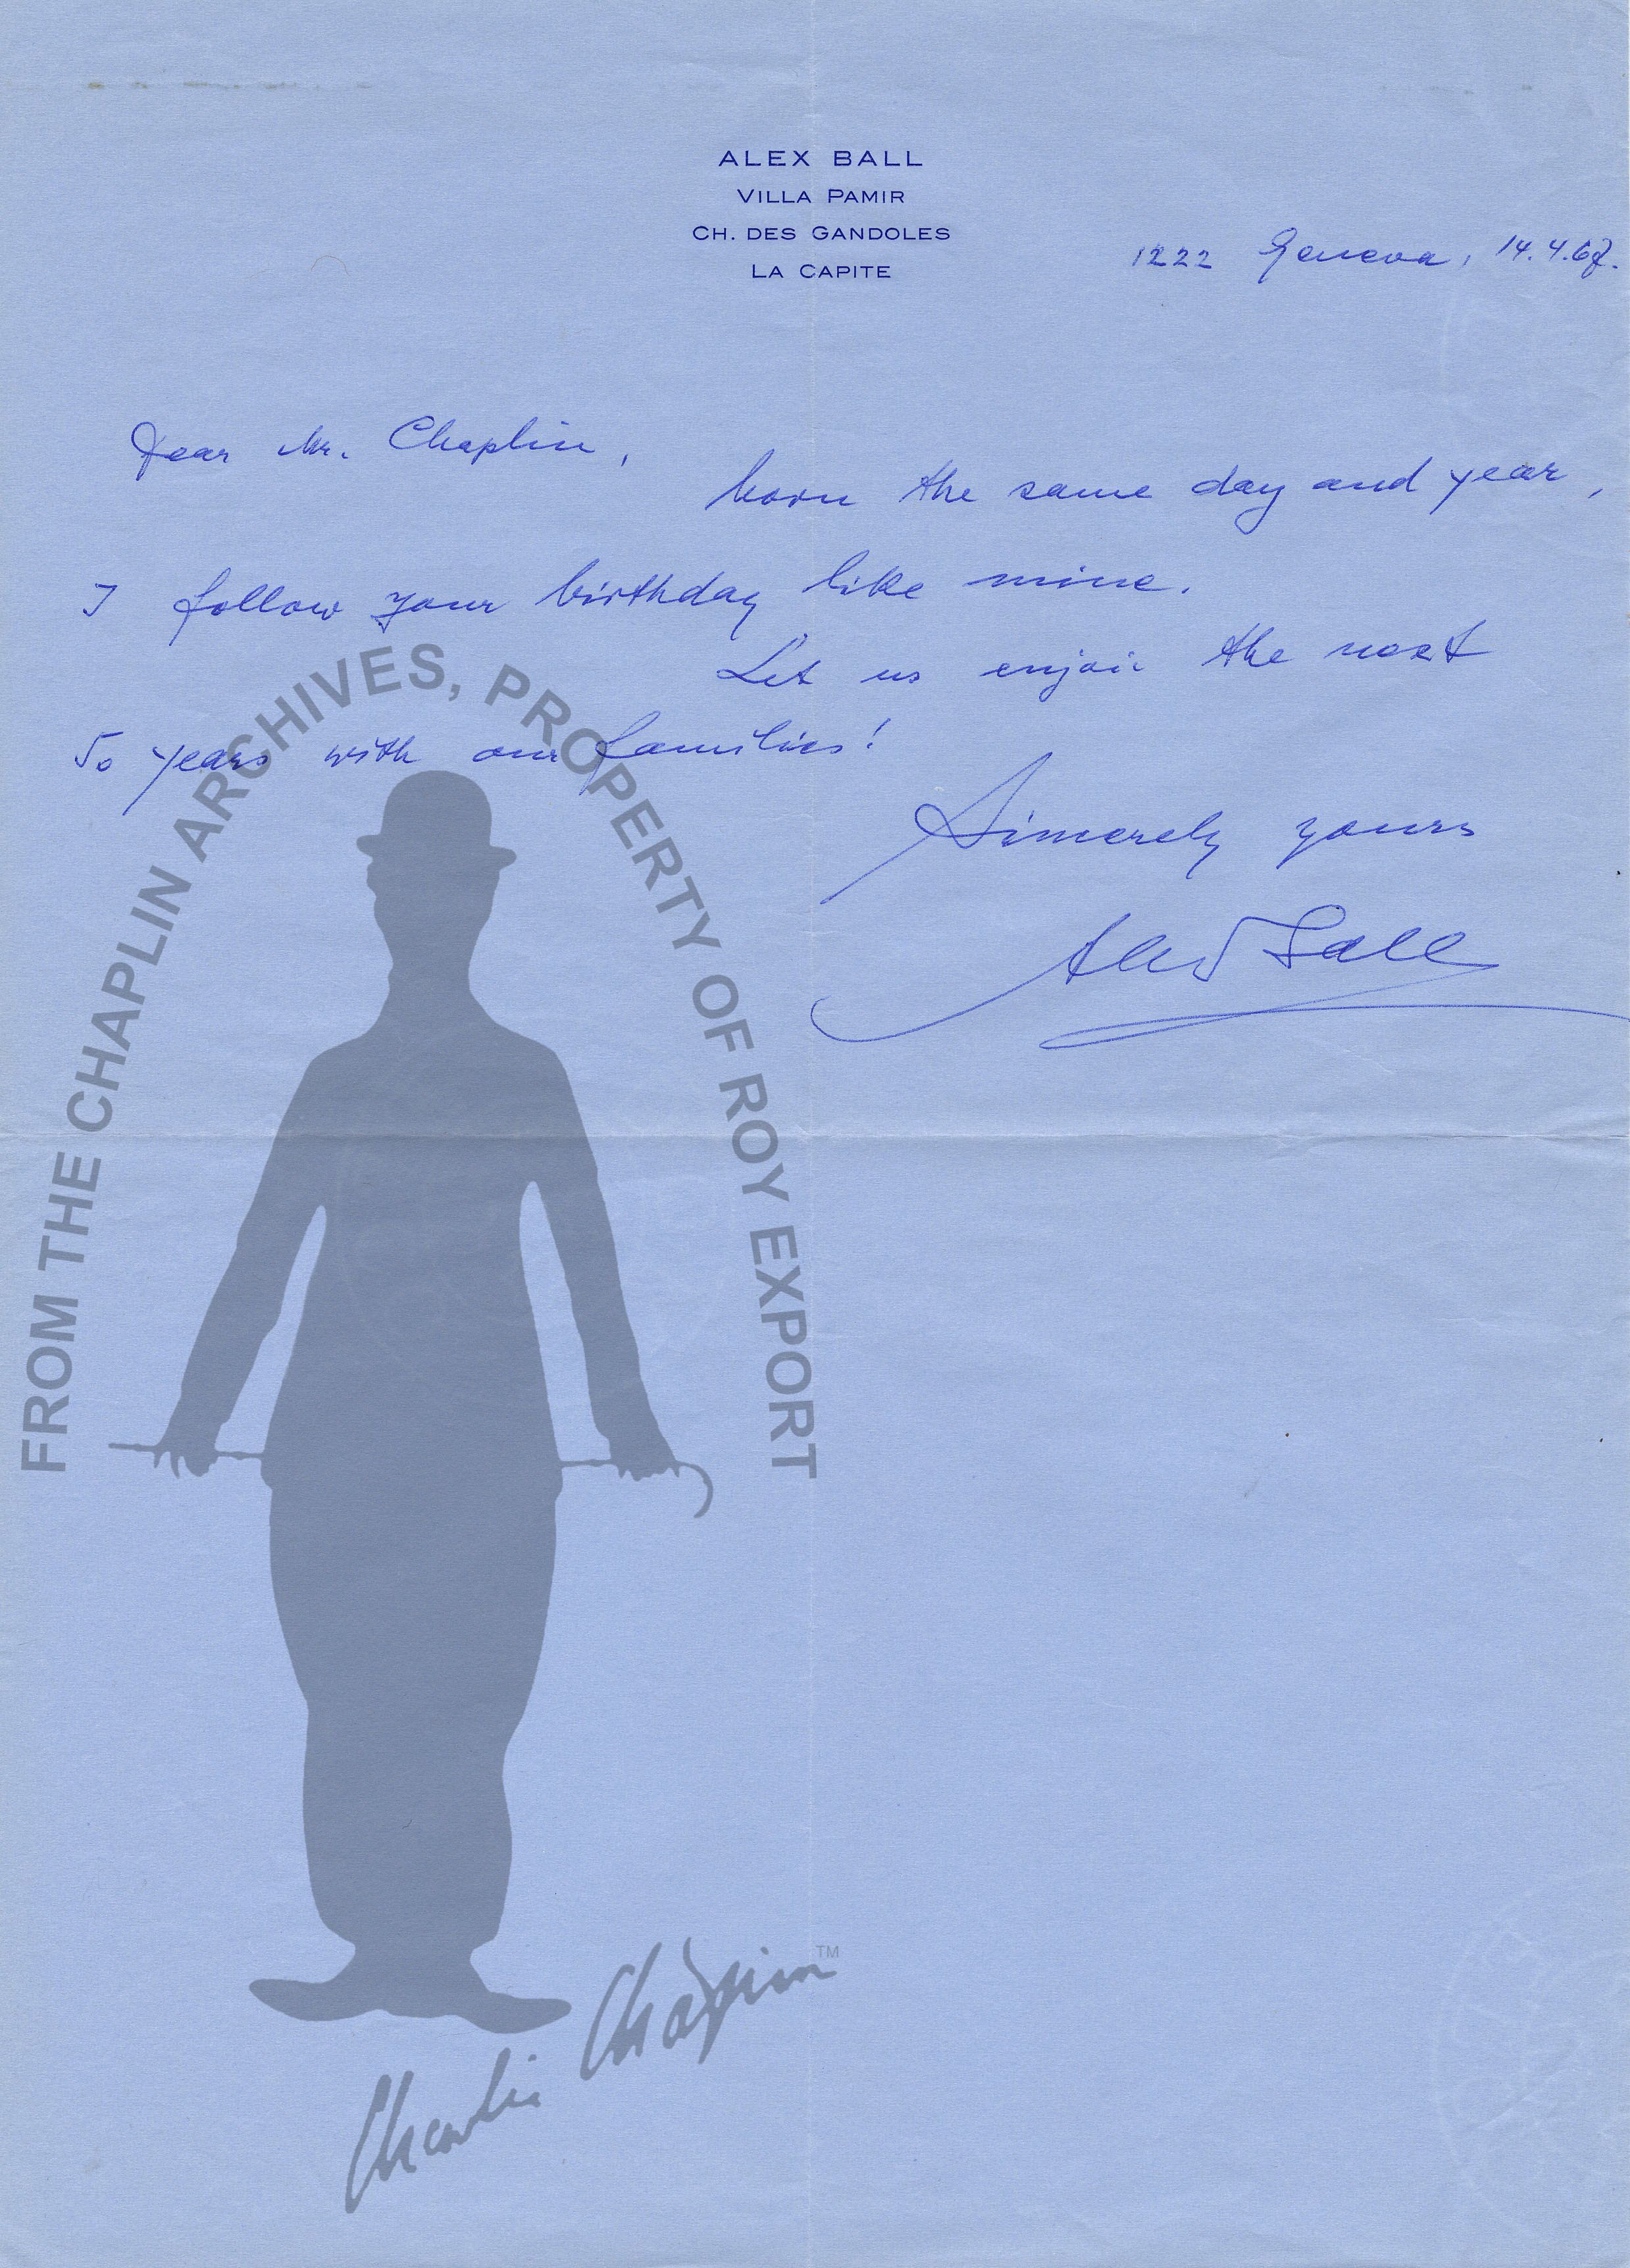 ALEX BALL
VILLA PAMIR
CH. DES GANDOLES
LA CAPITE
1222 Geneva, 14.4.67.
Dear Mr. Chaplin,
born the same day and year,
I follow your birthday like mine.
Let us enjoi the next
50 years with our families!
Sincerely yours
Alex Ball
FROM THE CHAPLIN ARCHIVES, PROPERTY OF ROY EXPORT
Charlie Chaplin™